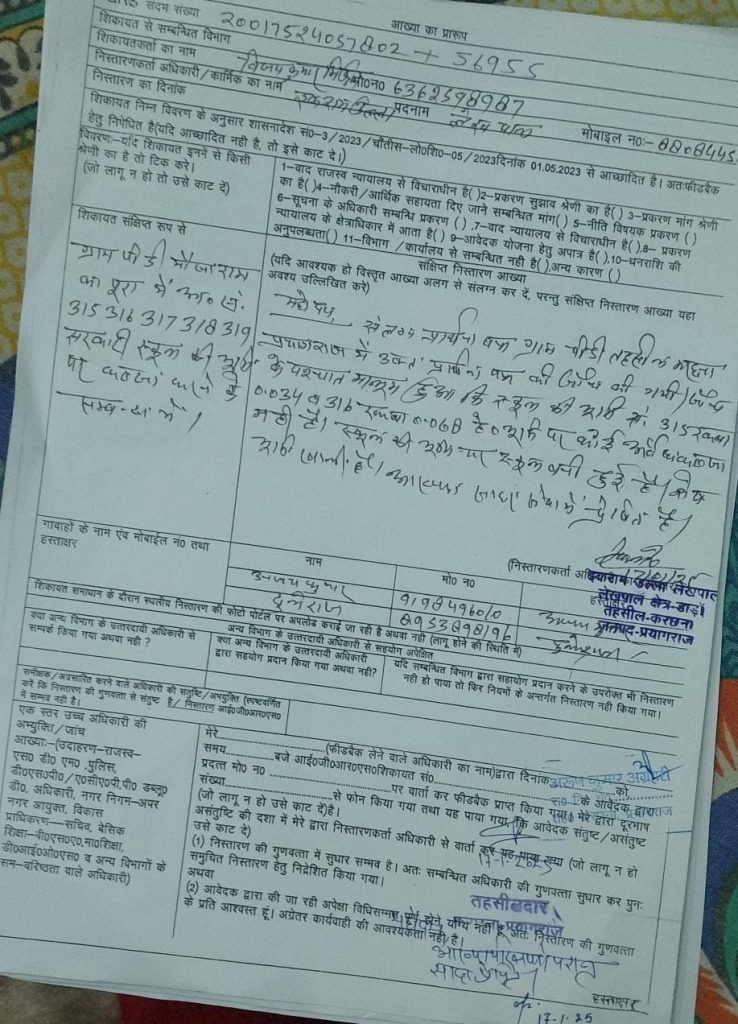 आख्या का प्रारूप
संदर्भ संख्या 20017524057802 + 56955
शिकायत से सम्बन्धित विभाग
शिकायतकर्ता का नाम विजय कुमार मो0न0 6362598987
निस्तारणकर्ता अधिकारी/कार्मिक का नाम पदनाम लेखपाल मोबाइल न0:-
निस्तारण का दिनांक
शिकायत निम्न विवरण के अनुसार शासनादेश सं0-3/2023/चौतीस-लो0शि0-05/2023दिनांक 01.05.2023 से आच्छादित है। अतःफीडबैक
हेतु निषेधित है(यदि आच्छादित नही है, तो इसे काट दे।)
विवरण:-यदि शिकायत इनने से किसी
श्रेणी का है तो टिक करे।
(जो लागू न हो तो उसे काट दे)
1-वाद राजस्व न्यायालय से विचाराधीन है()2-प्रकरण सुझाव श्रेणी का है() 3-प्रकरण मांग श्रेणी
का है()4-नौकरी/आर्थिक सहायता दिए जाने सम्बन्धित मांग() 5-नीति विषयक प्रकरण ()
6-सूचना के अधिकारी सम्बन्धि प्रकरण () ,7-वाद न्यायालय से विचाराधीन है(),8- प्रकरण
न्यायालय के क्षेत्राधिकार में आता है() 9-आवेदक योजना हेतु अपात्र है(),10-धनराशि की
अनुपलब्धता() 11-विभाग /कार्यालय से सम्बन्धित नही है(),अन्य कारण ()
शिकायत संक्षिप्त रूप से
ग्राम पीडी मौजा राम
का पूरा में आ0 सं.
315 316 317 318 319
सरकारी स्कूल की भूमि
पर कब्जा करने के
सम्बन्ध में।
संक्षिप्त निस्तारण आख्या
(यदि आवश्यक हो विस्तृत आख्या अलग से संलग्न कर दें, परन्तु संक्षिप्त निस्तारण आख्या यहा
अवश्य उल्लिखित करे)
महोदय,
संलग्न प्रार्थना पत्र ग्राम पीडी तहसील करछना
प्रयागराज में उक्त प्रार्थना पत्र की जाँच की गयी। जाँच
के पश्चात मालूम हुआ कि स्कूल की आ0 सं. 315 रकबा
0.034 व 316 रकबा 0.068 हे0 भूमि पर कोई अवैध कब्जा
नही है। स्कूल की भूमि पर स्कूल बनी हुई है। शेष
भूमि खाली है। आख्या सादर सेवा में प्रेषित है।
(निस्तारणकर्ता
लेखपाल
लेखपाल क्षेत्र-डाड़ी
तहसील-करछना
जनपद-प्रयागराज
गावाहों के नाम एंव मोबाईल न0 तथा
हस्ताक्षर
नाम
मो0 न0
हस्ताक्षर
अजय कुमार
9198496010
8953898196
शिकायत समाधान के दौरान स्थलीय निस्तारण की फोटो पोर्टल पर अपलोड कराई जा रही है अथवा नही (लागू होने की स्थिति में)
क्या अन्य विभाग के उत्तरदायी अधिकारी से
सम्पर्क किया गया अथवा नही ?
अन्य विभाग के उत्तरदायी अधिकारी से सहयोग अपेक्षित
क्या अन्य विभाग के उत्तरदायी अधिकारी
द्वारा सहयोग प्रदान किया गया अथवा नही?
यदि सम्बन्धित विभाग द्वारा सहयोग प्रदान करने के उपरोक्त भी निस्तारण
नही हो पाया तो फिर नियमों के अन्तर्गत निस्तारण नही किया गया।
समीक्षक/अग्रसारित करने वाले अधिकारी की संतुष्टि/अभियुक्ति (स्पष्टवर्णित
करें कि निस्तारण की गुणवत्ता से संतुष्ट है/ निस्तारण आई०जी०आर०एस०
में सम्भव नही है।
एक स्तर उच्च अधिकारी की
अभ्युक्ति/जांच
आख्याः-(उदाहरण-राजस्व-
एस0 डी0 एम0 ,पुलिस,
डी0एस0पी0/ए0सी0ए0पी,पी0 डब्लू0
डी0, अधिकारी, नगर निगम-अपर
नगर आयुक्त, विकास
प्राधिकरण—सचिव, बेसिक
शिक्षा-बी0एस0ए0,मा0शिक्षा,
डी0आई0ओ0एस0 व अन्य विभागों के
सम-वरिष्ठता वाले अधिकारी)
मेरे..........(फीडबैक लेने वाले अधिकारी का नाम)द्वारा दिनांक अरूण कुमार अग्रहरी
समय..........बजे आई0जी0आर0एस0शिकायत सं0..........को
प्रदत्त मो0 न0 ..........पर वार्ता कर फीडबैक प्राप्त किया गया। मेरे द्वारा दूरभाष
संख्या..........से फोन किया गया तथा यह पाया गया कि आवेदक संतुष्ट/असंतुष्ट
(जो लागू न हो उसे काट दें)है।
असंतुष्टि की दशा में मेरे द्वारा निस्तारणकर्ता अधिकारी से वार्ता कर यह पाया गया (जो लागू न हो
उसे काट दे)
(1) निस्तारण की गुणवत्ता में सुधार सम्भव है। अतः सम्बन्धित अधिकारी की गुणवत्ता सुधार कर पुनः
समुचित निस्तारण हेतु निर्देशित किया गया।
अथवा
(2) आवेदक द्वारा की जा रही अपेक्षा विधिसम्मत पूर्ण होने योग्य नही है, अतः निस्तारण की गुणवत्ता
के प्रति आश्वस्त हूं। अग्रेतर कार्यवाही की आवश्यकता नही है।
तहसीलदार
प्रयागराज
हस्ताक्षर
17.1.25